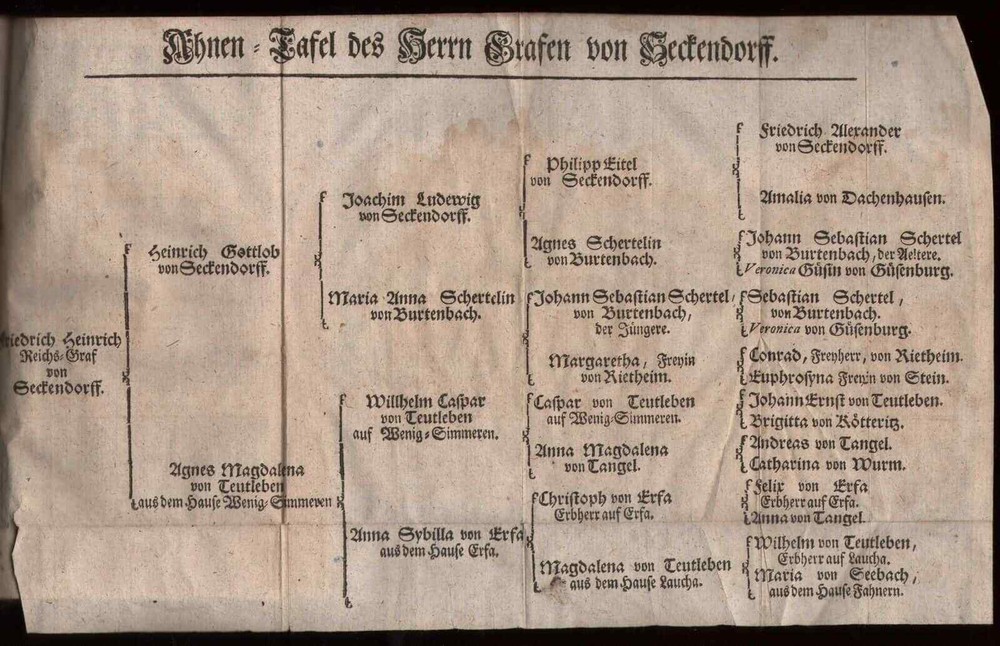 Ahnen-Tafel des Herrn Grafen von Seckendorff.
Friedrich Heinrich
Reichs-Graf
von
Seckendorff.
Heinrich Gottlob
von Seckendorff.
Agnes Magdalena
von Teutleben
aus dem Hause Wenig-Simmeren
Joachim Ludewig
von Seckendorff.
Maria Anna Schertelin
von Burtenbach.
Willhelm Caspar
von Teutleben
auf Wenig-Simmeren.
Anna Sybilla von Erfa
aus dem Hause Erfa.
Philipp Eitel
von Seckendorff.
Agnes Schertelin
von Burtenbach.
Johann Sebastian Schertel,
von Burtenbach,
der Jüngere.
Margaretha, Freyin
von Rietheim.
Caspar von Teutleben
auf Wenig-Simmeren.
Anna Magdalena
von Tangel.
Christoph von Erfa
Erbherr auf Erfa.
Magdalena von Teutleben
aus dem Hause Laucha.
Friedrich Alexander
von Seckendorff.
Amalia von Dachenhausen.
Johann Sebastian Schertel
von Burtenbach, der Aeltere.
Veronica Güsin von Güsenburg.
Sebastian Schertel,
von Burtenbach.
Veronica von Güsenburg.
Conrad, Freyherr, von Rietheim.
Euphrosyna Freyin von Stein.
Johann Ernst von Teutleben.
Brigitta von Kötteritz.
Andreas von Tangel.
Catharina von Wurm.
Felix von Erfa
Erbherr auf Erfa.
Anna von Tangel.
Wilhelm von Teutleben,
Erbherr auf Laucha.
Maria von Seebach,
aus dem Hause Fahnern.